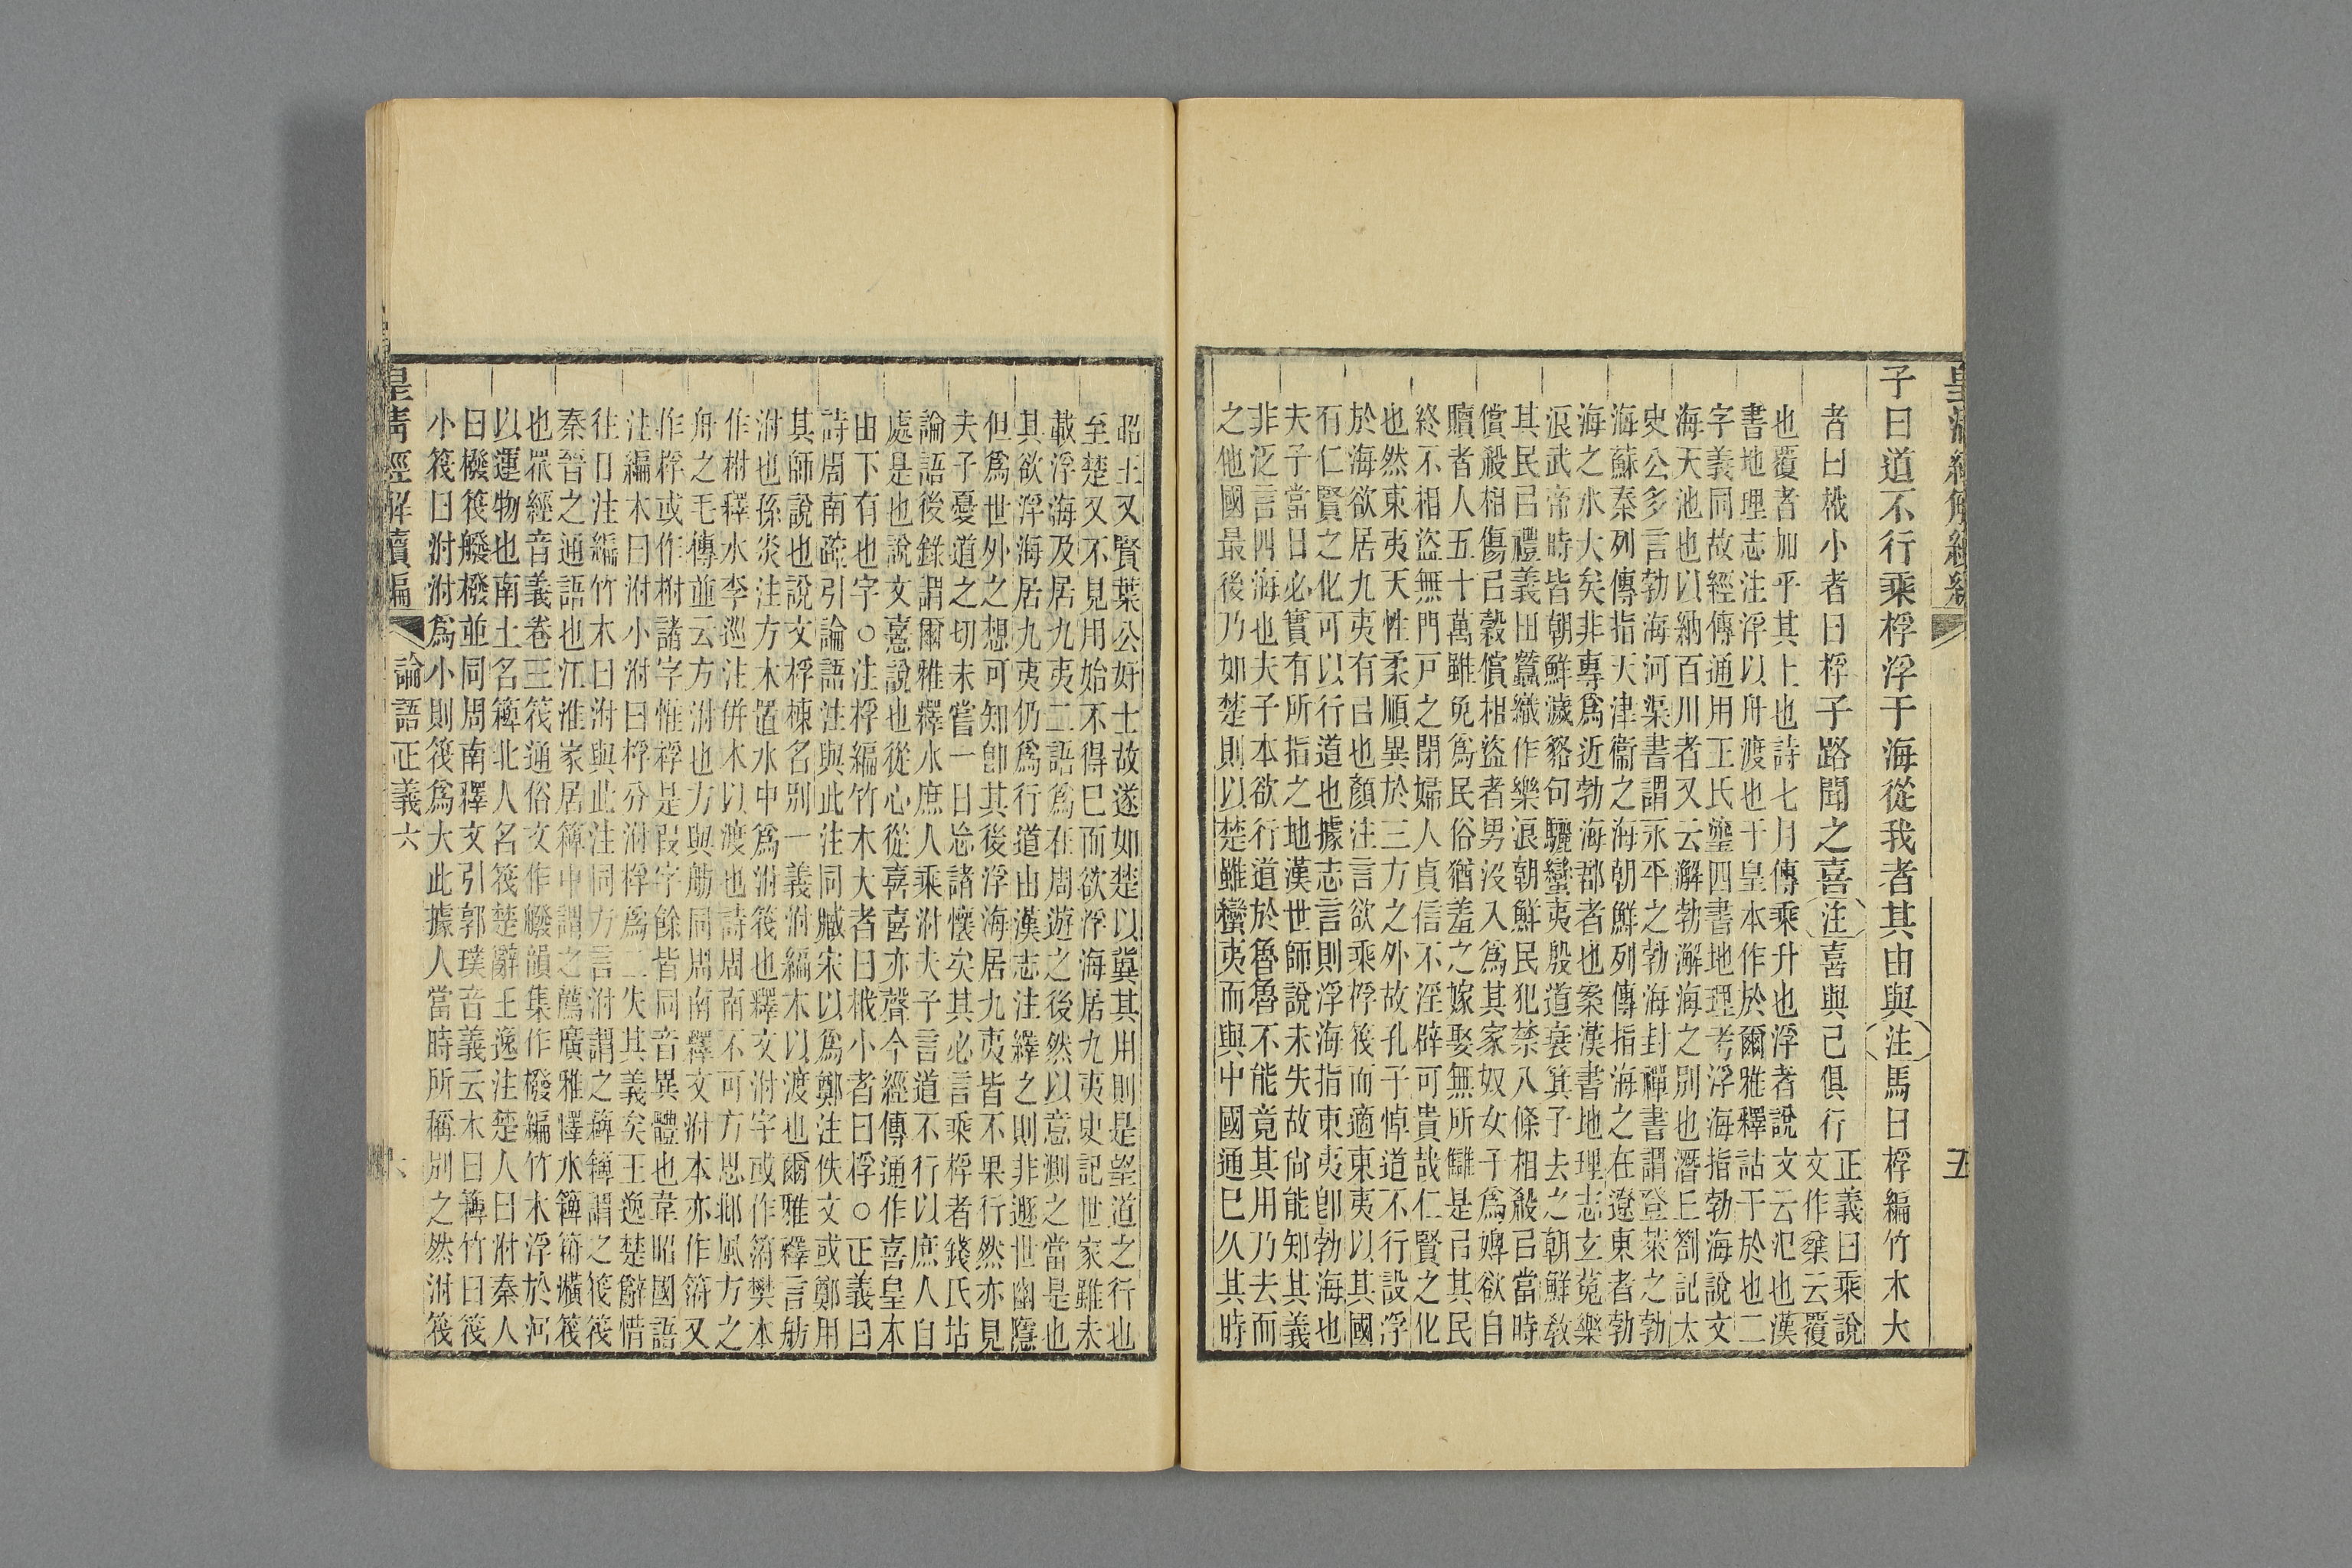 皇清經解續編
五
子曰道不行乘桴浮于海從我者其由與注馬曰桴編竹木大
者曰栰小者曰桴子路聞之喜注喜與己俱行
正義曰乘說
文作椉云覆
也覆者加乎其上也詩七月傳乘升也浮者說文云氾也漢
書地理志注浮以舟渡也于皇本作於爾雅釋詁于於也二
字義同故經傳通用王氏瑬四書地理考浮海指勃海說文
海天池也以納百川者又云澥勃澥海之別也潛丘劄記太
史公多言勃海河渠書謂永平之勃海封禪書謂登萊之勃
海蘇秦列傳指天津衞之海朝鮮列傳指海之在遼東者勃
海之水大矣非專爲近勃海郡者也案漢書地理志玄菟樂
浪武帝時皆朝鮮濊貉句驪蠻夷殷道衰箕子去之朝鮮敎
其民㠯禮義田蠶織作樂浪朝鮮民犯禁八條相殺㠯當時
償殺相傷㠯穀償相盜者男沒入爲其家奴女子爲婢欲自
贖者人五十萬雖免爲民俗猶羞之嫁娶無所讎是㠯其民
終不相盜無門戸之閉婦人貞信不淫辟可貴哉仁賢之化
也然東夷天性柔順異於三方之外故孔子悼道不行設浮
於海欲居九夷有㠯也顏注言欲乘桴筏而適東夷以其國
有仁賢之化可以行道也據志言則浮海指東夷卽勃海也
夫子當日必實有所指之地漢世師說未失故尙能知其義
非泛言四海也夫子本欲行道於魯魯不能竟其用乃去而
之他國最後乃如楚則以楚雖蠻夷而與中國通巳久其時
昭王又賢葉公好士故遂如楚以冀其用則是望道之行也
至楚又不見用始不得巳而欲浮海居九夷史記世家雖未
載浮海及居九夷二語爲在周遊之後然以意測之當是也
其欲浮海居九夷仍爲行道由漢志注繹之則非遯世幽隱
但爲世外之想可知卽其後浮海居九夷皆不果行然亦見
夫子憂道之切未嘗一日忘諸懷矣其必言乘桴者錢氏坫
論語後錄謂爾雅釋水庶人乘泭夫子言道不行以庶人自
處是也說文憙說也從心從喜喜亦聲今經傳通作喜皇本
由下有也字○注桴編竹木大者曰栰小者曰桴○正義曰
詩周南疏引論語注與此注同臧宋以爲鄭注佚文或鄭用
其師說也說文桴棟名別一義泭編木以渡也爾雅釋言舫
泭也孫炎注方木置水中爲泭筏也釋文泭字或作箁樊本
作柎釋水李巡注併木以渡也詩周南不可方思邶風方之
舟之毛傳並云方泭也方與舫同周南釋文泭本亦作箁又
作桴或作柎諸字惟桴是叚字餘皆同音異體也韋昭國語
注編木曰泭小泭曰桴分泭桴爲二失其義矣王逸楚辭惜
往日注編竹木曰泭與此注同方言泭謂之䉬䉬謂之筏筏
秦晉之通語也江淮家居䉬中謂之薦廣雅釋水䉬箄䉶筏
也衆經音義卷三筏通俗文作艬韻集作橃編竹木浮於河
以運物也南土名䉬北人名筏楚辭王逸注楚人曰泭秦人
曰橃筏艬橃並同周南釋文引郭璞音義云木曰䉬竹曰筏
小筏曰泭泭爲小則筏爲大此據人當時所稱別之然泭筏
皇清經解續編
論語正義六
六